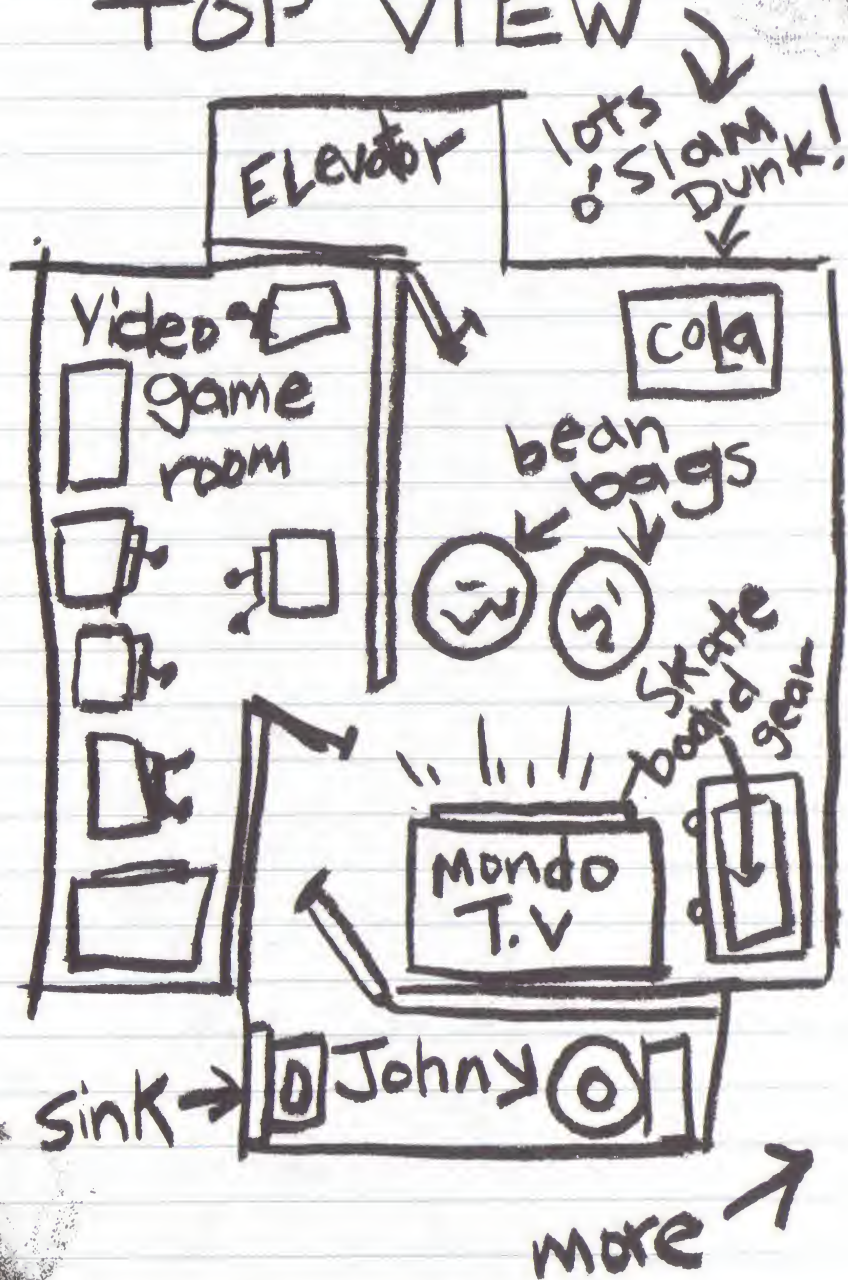 TOP VIEW
lots
o' Slam
Dunk!
Elevator
Video
game
room
cola
bean
bags
Skate
board
gear
Mondo
T.V
Sink
Johny
more